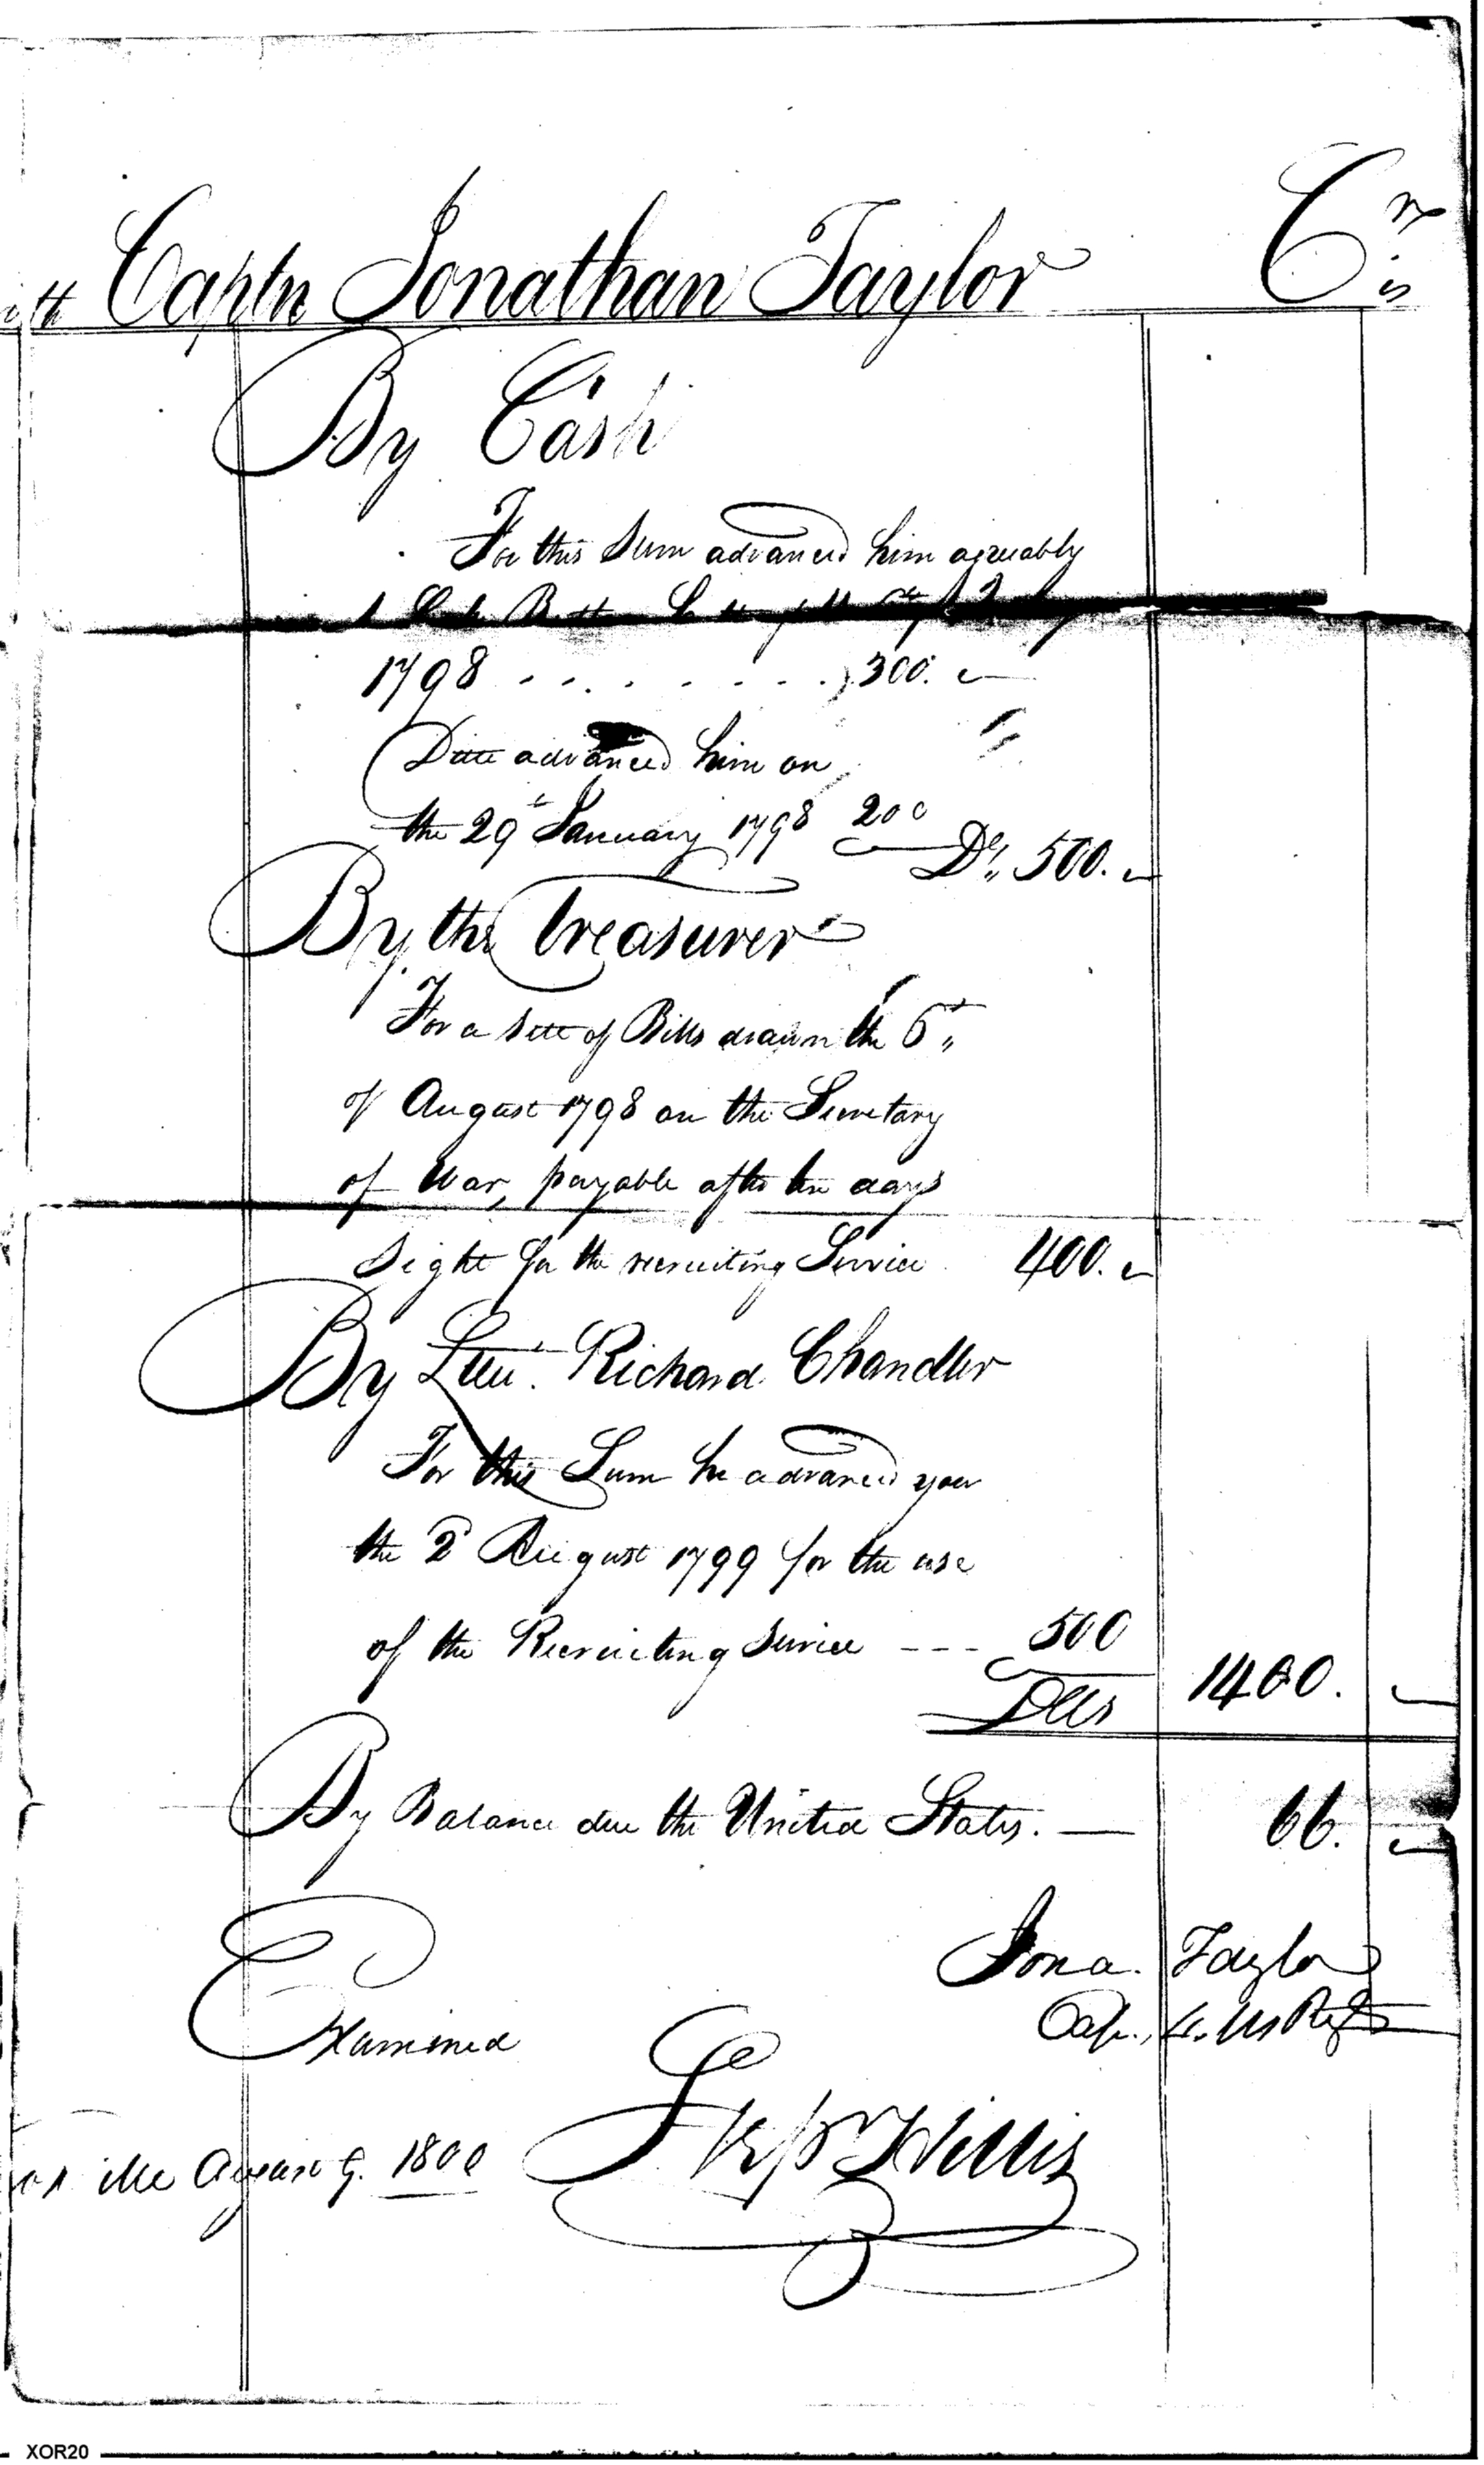 with Captn Jonathan Taylor Cr is
By Cash
For this Sum advanced him agreeably
1798 . . . . . . . . 300.
Ditto advanced him on
the 29th January 1798 200
Drs 500.
By the Treasurer
For a Sett of Bills drawn the 6th
of August 1798 on the Secretary
of War, payable after ten days
Sight for the recruiting Service 400.
By Lieut. Richard Chandler
For this Sum he advanced you
the 2d August 1799 for the use
of the Recruiting Service --- 500
Dlls 1400.
By Balance due the United States. — 66.
Jona. Taylor
Cap., 4. US Regt
Examined
Willis
August 9. 1800
XOR20